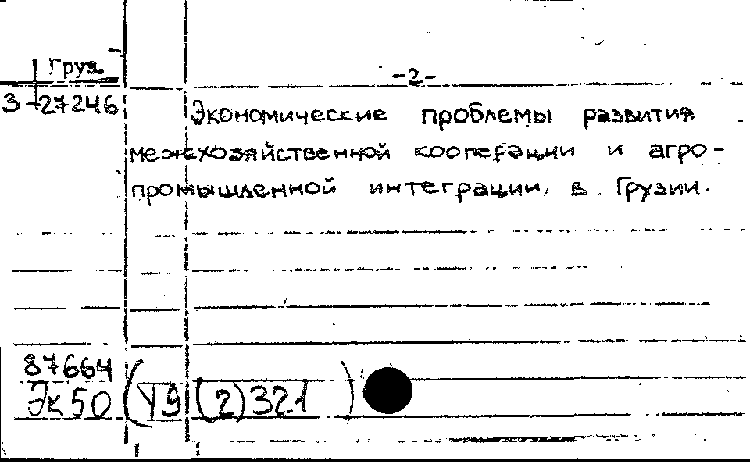 Груз.
-2-
3-27246
Экономические проблемы развития
межхозяйственной кооперации и агро-
промышленной интеграции в Грузии.
87664
Эк50 (У9(2)321)